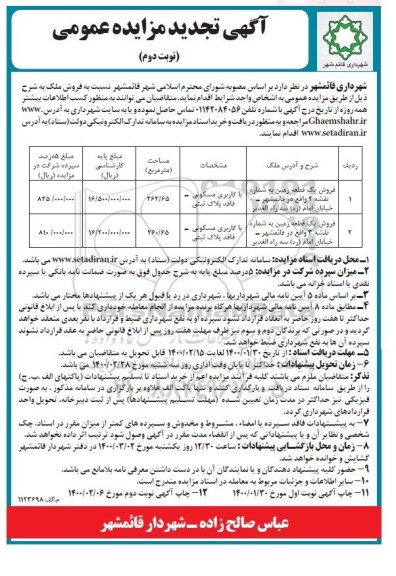 آگهی تجدید مزایده عمومی
(نوبت دوم)
شهرداری قائم شهر
شهرداری قائمشهر در نظر دارد بر اساس مصوبه شورای محترم اسلامی شهر قائمشهر نسبت به فروش ملک به شرح
ذیل از طریق مزایده عمومی به اشخاص واجد شرایط اقدام نماید. متقاضیان می توانند به منظور کسب اطلاعات بیشتر
همه روزه از تاریخ درج آگهی با شماره تلفن ۰۱۱۴۲۰۸۴۰۵۶ تماس حاصل نموده و یا به سایت شهرداری به آدرس www.
Ghaemshahr.ir مراجعه و به منظور دریافت و خرید اسناد مزایده به سامانه تدارک الکترونیکی دولت (ستاد) به آدرس
www.setadiran.ir اقدام نمایند.
ردیف شرح و آدرس ملک مشخصات مساحت (مترمربع) مبلغ پایه کارشناسی (ریال) مبلغ ۵درصد سپرده شرکت در مزایده (ریال)
۱ فروش یک قطعه زمین به شماره نقشه ۲ واقع در قائمشهر ـ خیابان امام (ره) سه راه الغدیر با کاربری مسکونی ـ فاقد پلاک ثبتی ۲۶۲/۶۵ ۱۶/۵۰۰/۰۰۰/۰۰۰ ۸۲۵/۰۰۰/۰۰۰
۲ فروش یک قطعه زمین به شماره نقشه ۳ واقع در قائمشهر ـ خیابان امام (ره) سه راه الغدیر با کاربری مسکونی ـ فاقد پلاک ثبتی ۲۶۰/۶۵ ۱۶/۲۰۰/۰۰۰/۰۰۰ ۸۱۰/۰۰۰/۰۰۰
۱ـ محل دریافت اسناد مزایده: سامانه تدارک الکترونیکی دولت (ستاد) به آدرس www.setadiran.ir می باشد.
۲ـ میزان سپرده شرکت در مزایده: ۵درصد مبلغ پایه به شرح جدول فوق به صورت ضمانت نامه بانکی یا سپرده
نقدی یا اسناد خزانه می باشد.
۳ـ بر اساس ماده ۵ آیین نامه مالی شهرداریها، شهرداری در رد یا قبول هر یک از پیشنهادها مختار می باشد.
۴ـ مطابق ماده ۸ آیین نامه مالی شهرداریها هرگاه برنده مزایده از انجام معامله خودداری کند یا پس از ابلاغ قانونی
حداکثر تا هفت روز حاضر به انعقاد قرارداد نشود سپرده او به نفع شهرداری ضبط و قرارداد با نفر بعدی منعقد خواهد
گردید و در صورتی که برندگان دوم و سوم نیز ظرف مهلت هفت روز پس از ابلاغ قانونی حاضر به عقد قرارداد نشوند
سپرده آن ها به نفع شهرداری ضبط خواهد شد.
۵ـ مهلت دریافت اسناد: از تاریخ ۱۴۰۰/۰۱/۳۰ لغایت ۱۴۰۰/۰۲/۱۵ قابل تحویل به متقاضیان می باشد.
۶ـ زمان تحویل پیشنهادات: حداکثر تا پایان وقت اداری روز سه شنبه مورخ ۱۴۰۰/۰۲/۲۸ می باشد.
تذکر: متقاضیان ملزم می باشند کلیه فرآیند مزایده اعم از خرید اسناد تا تسلیم پیشنهادات (پاکتهای الف، ب، ج)
را از طریق سامانه ستاد دریافت و بارگذاری کنند و تنها پاکت الف علاوه بر بارگذاری در سامانه مذکور، به صورت
فیزیکی نیز حداکثر در مدت زمان تعیین شده (مهلت تسلیم پیشنهادها) پس از ثبت دبیرخانه، تحویل واحد
قراردادهای شهرداری گردد.
۷ـ به پیشنهادات فاقد سپرده یا امضاء، مشروط و مخدوش و سپرده های کمتر از میزان مقرر در اسناد، چک
شخصی و نظایر آن و یا پیشنهاداتی که پس از انقضاء مدت مقرر در آگهی وصول شود ترتیب اثر داده نخواهد شد.
۸ـ زمان و محل بازگشایی پیشنهادات: ساعت ۱۲/۳۰ روز یکشنبه مورخ ۱۴۰۰/۰۳/۰۲ در دفتر شهردار قائمشهر
گشایش و خوانده خواهد شد.
۹ـ حضور کلیه پیشنهاد دهندگان و یا نمایندگان آن با در دست داشتن معرفی نامه بلامانع می باشد.
۱۰ـ سایر اطلاعات و جزئیات مربوط به معامله در اسناد مزایده مندرج است.
۱۱ـ چاپ آگهی نوبت اول مورخ ۱۴۰۰/۰۱/۳۰ ۱۲ـ چاپ آگهی نوبت دوم مورخ ۱۴۰۰/۰۲/۰۶ م.الف ۱۱۲۳۶۹۸
عباس صالح زاده ـ شهردار قائمشهر